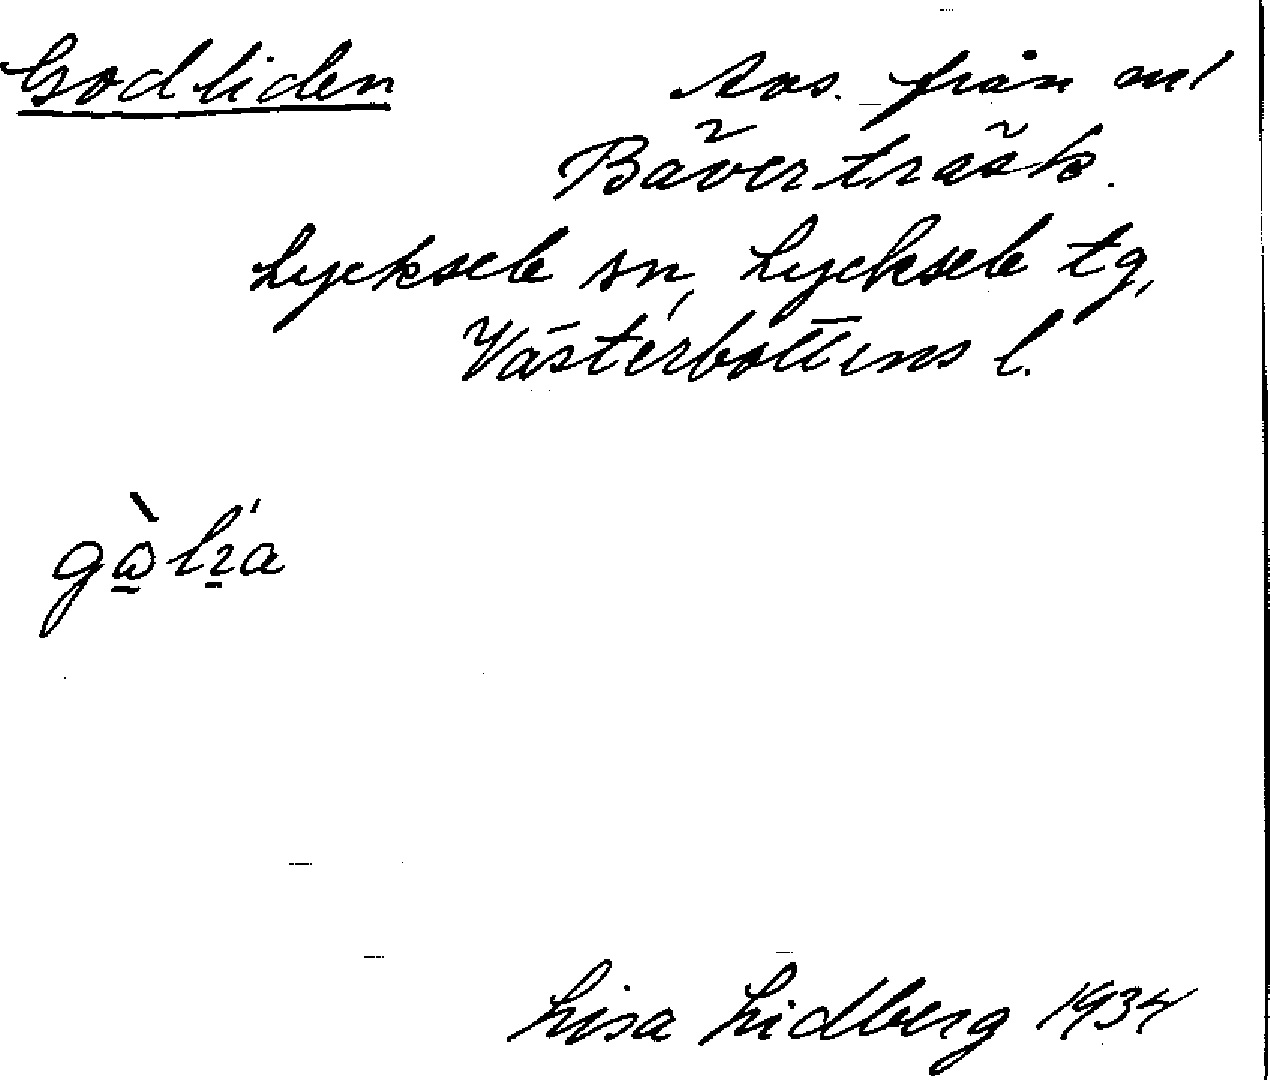 Godliden
Aos. från
Bäverträsk.
Lycksele sn, Lycksele tg,
Västerbottens l.
Lisa Lidberg 1934